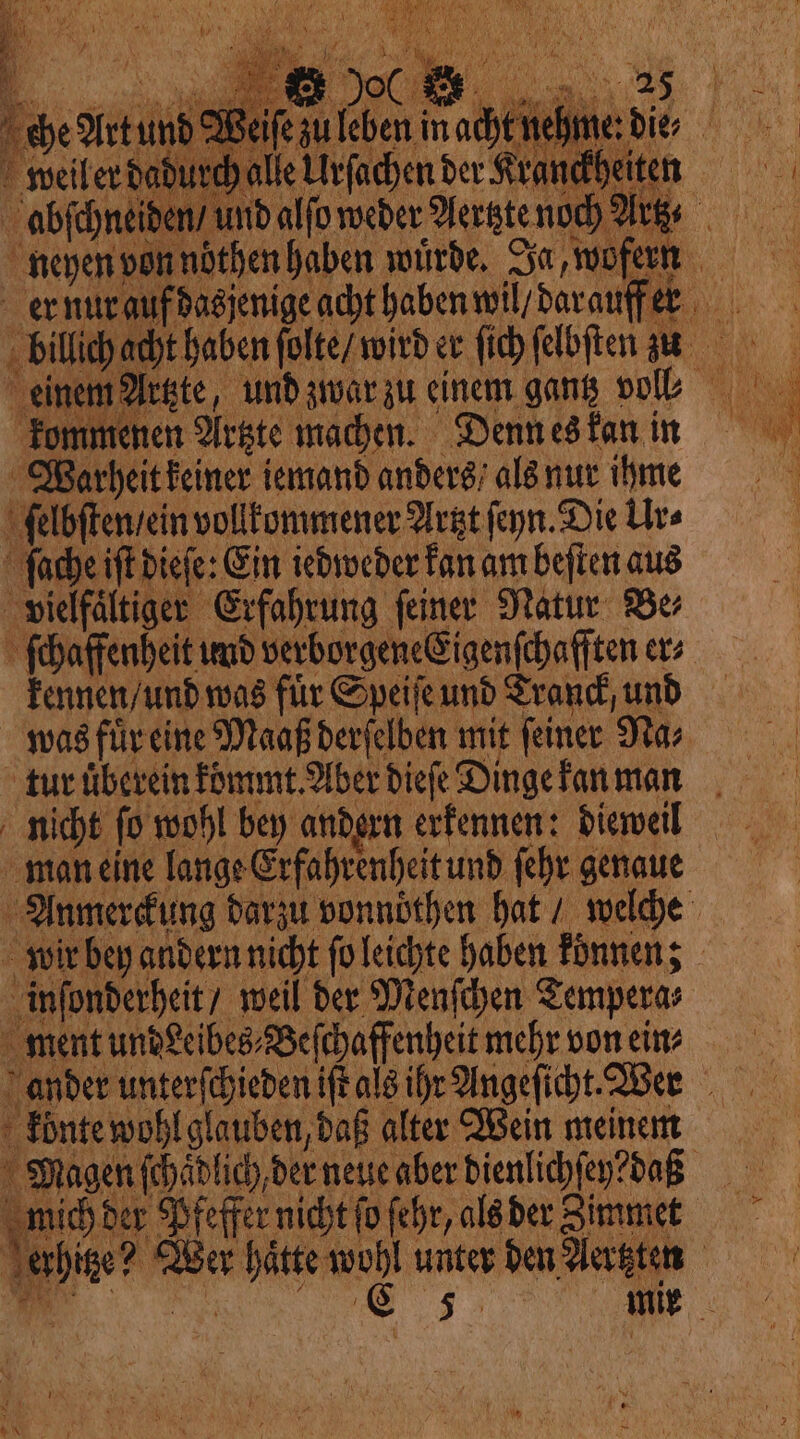 )o( 25
che Art und Weiſe zu leben in acht nehme: die⸗
weil er dadurch alle Urſachen der Kranckheiten
abſchneiden/ und alſo weder Aertzte noch Artz⸗
neyen von nöthen haben würde. Ja, wofern
er nur auf dasjenige acht haben wil/ darauff er
billich acht haben ſolte/ wird er ſich ſelbſten zu
einem Artzte, und zwar zu einem gantz voll⸗
kommenen Artzte machen. Denn es kan in
Warheit keiner iemand anders/ als nur ihme
ſelbſten/ ein vollkommener Artzt ſeyn. Die Ur⸗
ſache iſt dieſe: Ein iedweder kan am beſten aus
vielfältiger Erfahrung ſeiner Natur Be⸗
ſchaffenheit und verborgene Eigenſchafften er⸗
kennen/ und was für Speiſe und Tranck, und
was für eine Maaß derſelben mit ſeiner Na⸗
tur überein kömmt. Aber dieſe Dinge kan man
nicht ſo wohl bey andern erkennen: dieweil
man eine lange Erfahrenheit und ſehr genaue
Anmerckung darzu vonnöthen hat / welche
wir bey andern nicht ſo leichte haben können;
inſonderheit / weil der Menſchen Tempera⸗
ment und Leibes⸗Beſchaffenheit mehr von ein⸗
ander unterſchieden iſt als ihr Angeſicht. Wer
könte wohl glauben, daß alter Wein meinem
Magen ſchädlich, der neue aber dienlich ſey? daß
mich der Pfeffer nicht ſo ſehr, als der Zimmet
erhitze? Wer hätte wohl unter den Aertzten
C 5 mir